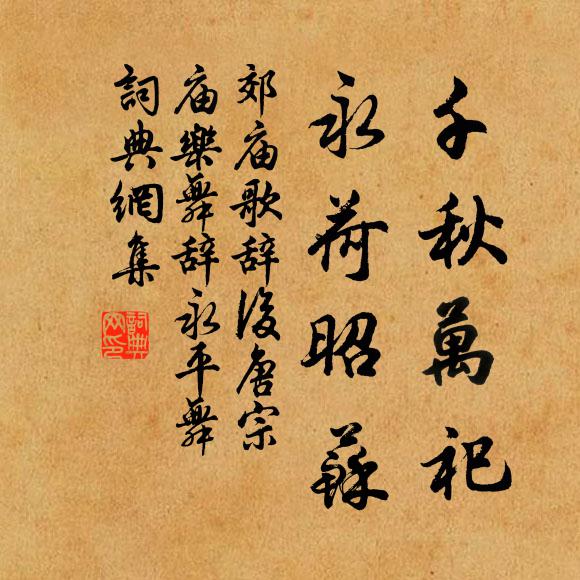 千秋萬祀
永荷昭蘇
郊庙歌辞後唐宗
庙樂舞辞永平舞
詞典網集
詞典網印